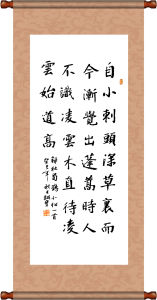 自小刺頭深草裏而
今漸覺出蓬蒿時人
不識凌雲木直待凌
雲始道高
杜荀鶴小松一首